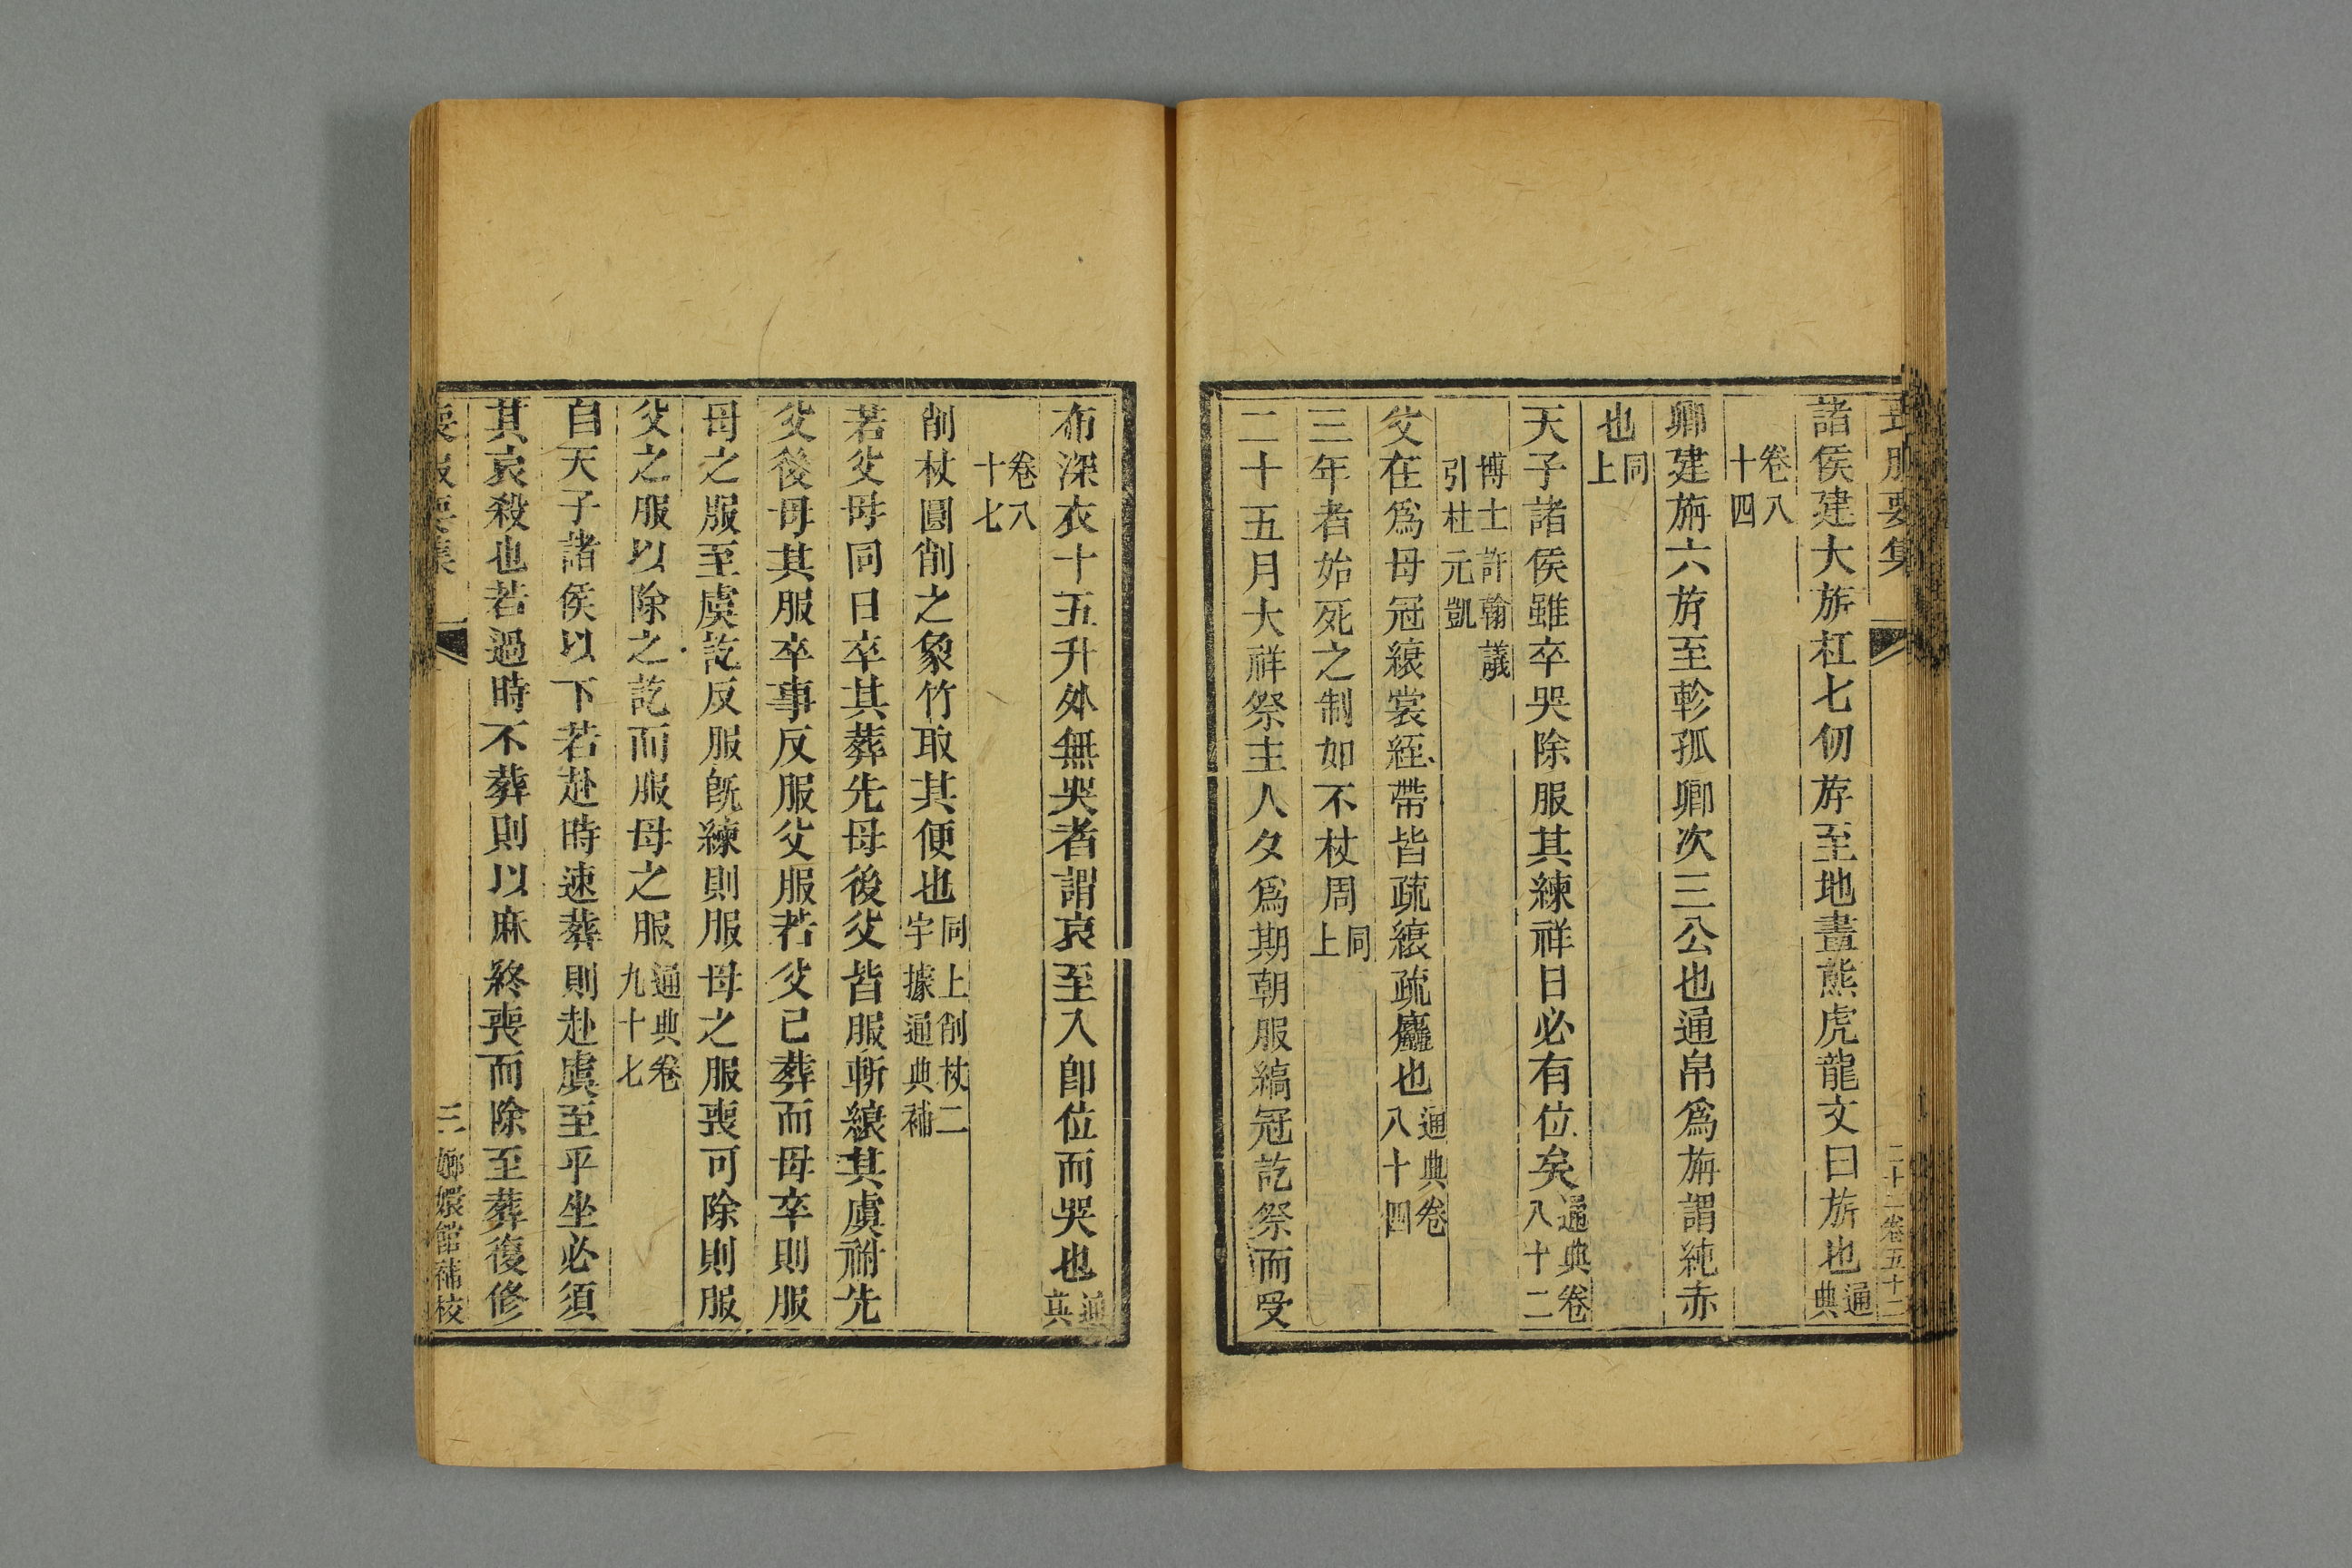 服要集
二十二卷五十二
諸侯建大旂杠七仞斿至地畫熊虎龍文曰旂也通典
卷八十四
卿建旃六斿至軫孤卿次三公也通帛爲旃謂純赤
也同上
天子諸侯雖卒哭除服其練祥日必有位矣通典卷八十二
博士許翰議引杜元凱
父在爲母冠縗裳絰帶皆疏縗疏麤也通典卷八十四
三年者始死之制如不杖周同上
二十五月大祥祭主人夕爲期朝服縞冠訖祭而受
布深衣十五升外無哭者謂哀至入卽位而哭也通典
卷八十七
削杖圓削之象竹取其便也同上削杖二字據通典補
若父母同日卒其葬先母後父皆服斬縗其虞祔先
父後母其服卒事反服父服若父已葬而母卒則服
母之服至虞訖反服旣練則服母之服喪可除則服
父之服以除之訖而服母之服通典卷九十七
自天子諸侯以下若赴時速葬則赴虞至平坐必須
其哀殺也若過時不葬則以麻終喪而除至葬復修
喪服要集
三
嫏嬛館補校